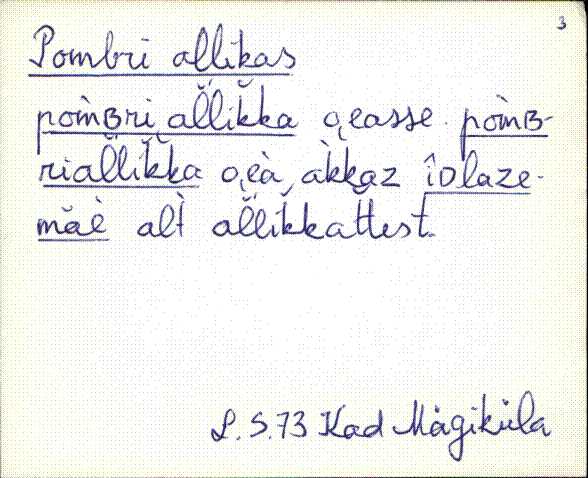 3
Pombri allikas
pòmʙri al̆l̆ikka o̬easse. pòmʙ-
rial̆l̆ĭkka o̬eà, àkkaz îᴅlaze-
măè alt̀ al̆l̆ikkat̆test.
L. S. 73 Kad Mägiküla